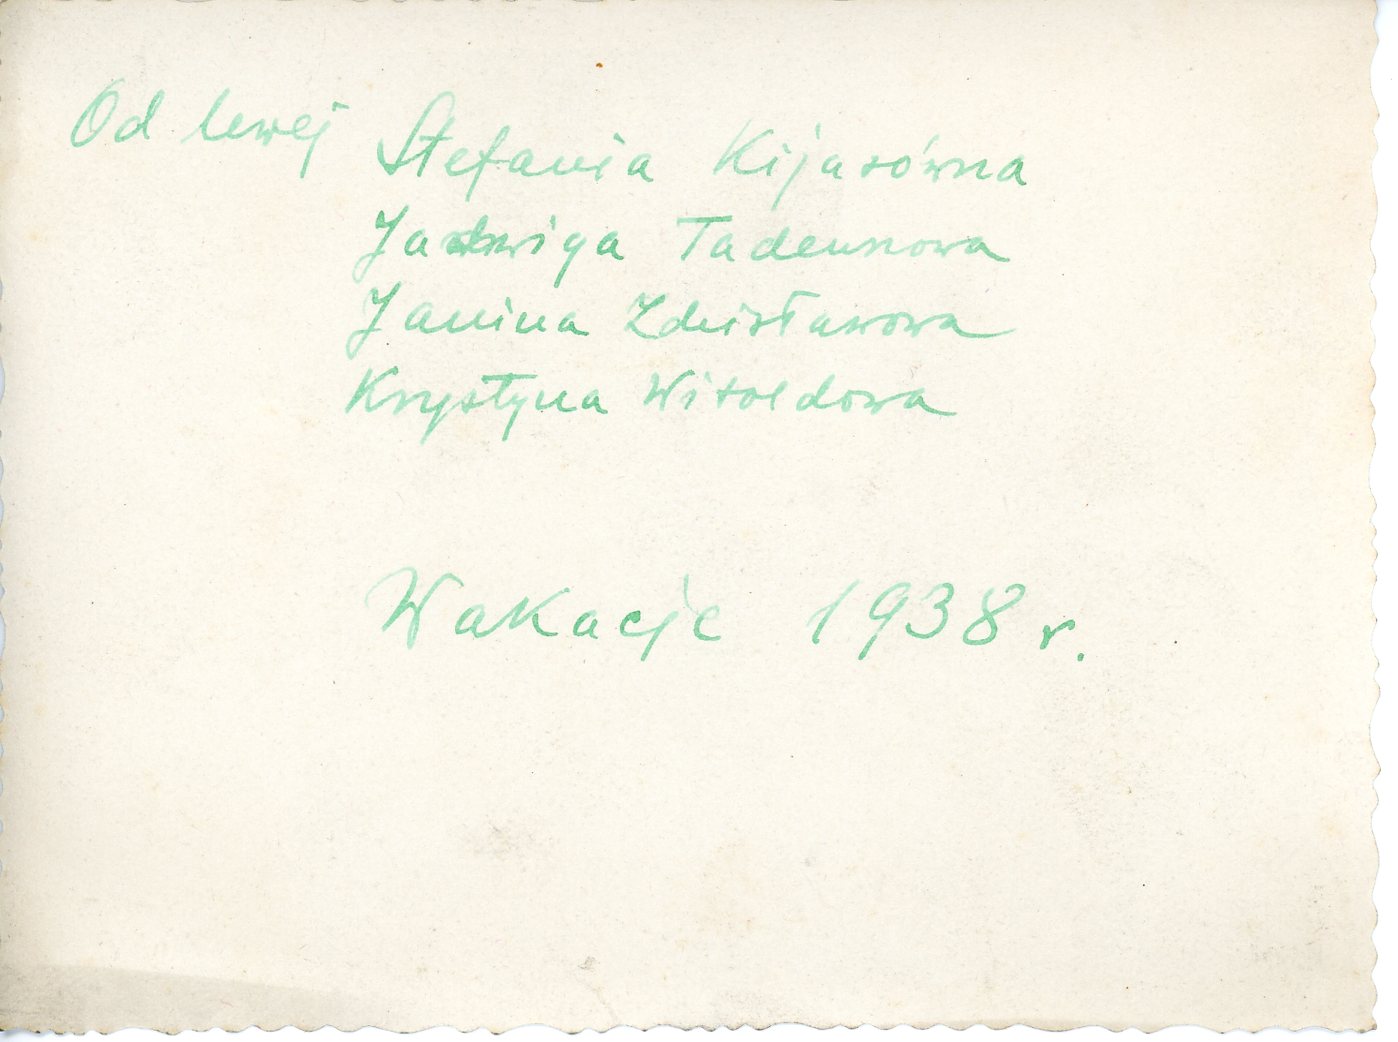 Od lewej Stefania Kijasówna
Jadwiga Tadeuszowa
Janina Zdzisławowa
Krystyna Witoldowa
Wakacje 1938 r.